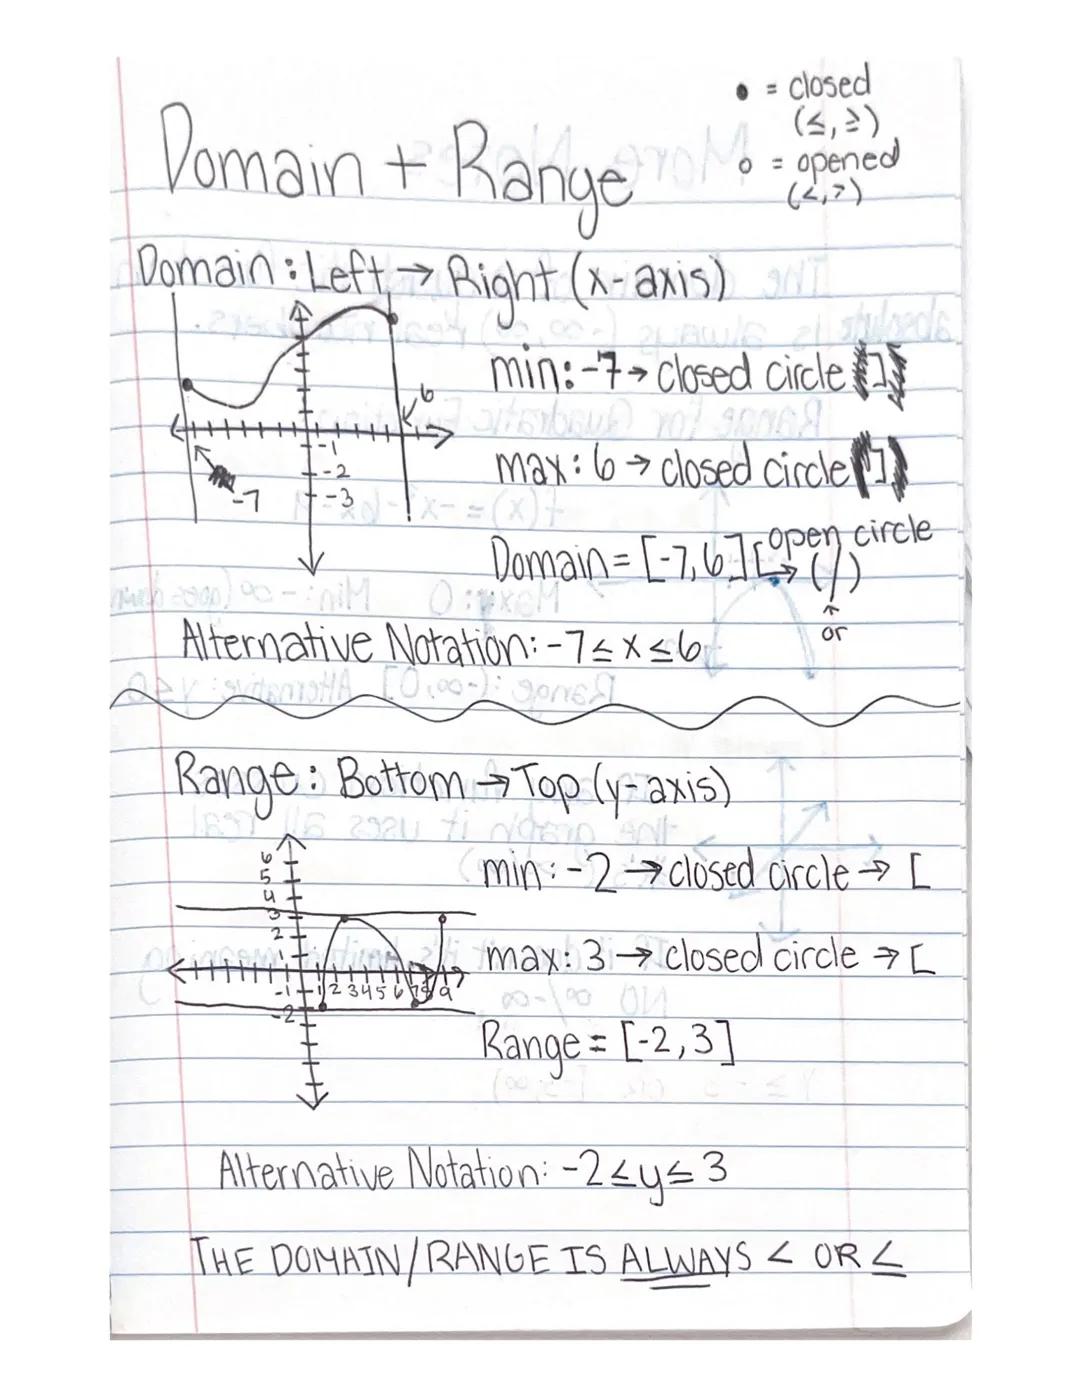 • = closed
(≤, ≥)
o = opened
(<, >)
Domain + Range
Domain: Left → Right (x-axis)
min: -7 → closed circle [ ]
6
max: 6 → closed circle [ ]
-1
-2
-3
-7
open circle
Domain = [-7, 6] [ → (/)
↑
or
Alternative Notation: -7 ≤ x ≤ 6
Range: Bottom → Top (y-axis)
6
5
4
3
2
1
min: -2 → closed circle → [
max: 3 → closed circle → [
-1 1 2 3 4 5 6 7 8 9
-2
Range = [-2, 3]
Alternative Notation: -2 ≤ y ≤ 3
THE DOMAIN/RANGE IS ALWAYS < OR ≤